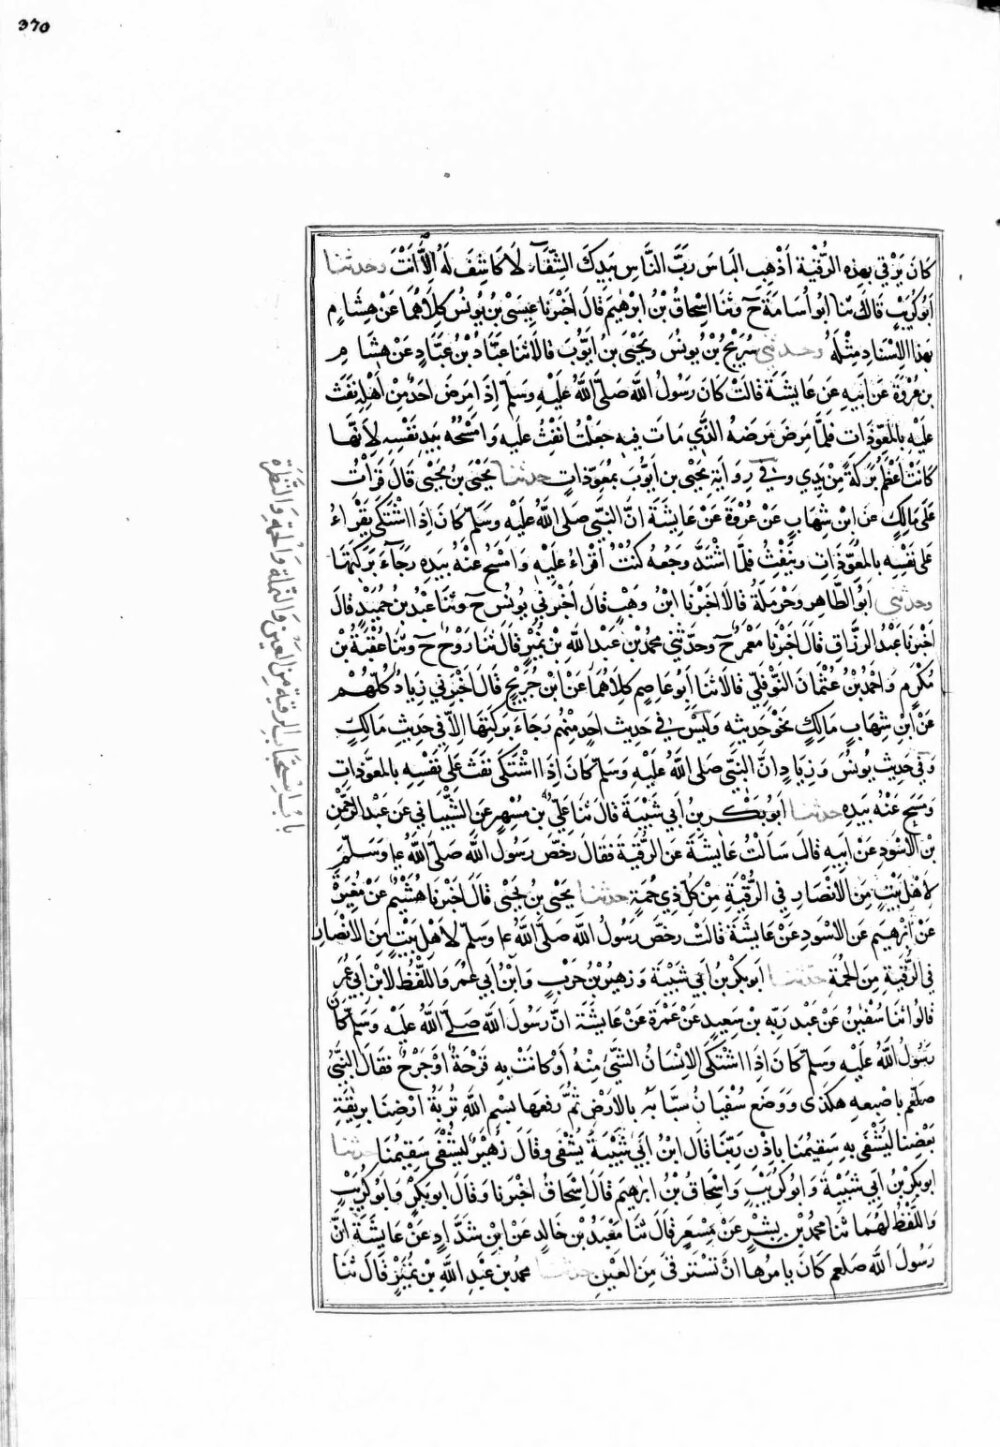 370
كَانَ يَرْقِي بِهذِهِ الرُّقْيَةِ أَذْهِبِ البَاسَ رَبَّ النَّاسِ بِيَدِكَ الشِّفَآءُ لَا كَاشِفَ لَهُ إِلَّا أَنْتَ وحدثنا
أبُو كُرَيْبٍ قَالَ ثنا أبُو أُسَامَةَ ح وَثنَا إِسْحَاقُ بْنُ ابْرٰهِيمَ قَالَ أَخْبَرَنَا عِيسَى بْنُ يُونُسَ كِلَاهُمَا عَنْ هِشَامٍ
بِهَذَا الْإِسْنَادِ مِثْلَهُ وحدثني سُرَيْجُ بْنُ يُونُسَ وَيَحْيَى بن أَيُّوبَ قَالَا ثنَا عَبَّادُ بْنُ عَبَّادٍ عَنْ هِشَامِ
بن عُرْوَةَ عَنْ أَبِيهِ عَن عَايِشَةَ قَالَتْ كَانَ رَسُولُ اللَّهِ صَلَّى اللَّهُ عَلَيْهِ وَسَلَّم إِذَا مَرِضَ أَحَدٌ مِّنْ أَهْلِهِ نَفَثَ
عَلَيْهِ بِالْمُعَوِّذَاتِ فَلَمَّا مَرِضَ مَرَضَهُ الَّذِي مَاتَ فِيهِ جَعَلْتُ أَنْفِثُ عَلَيهِ وَأَمْسَحُهُ بِيَدِ نَفْسِهِ لِأَنَّهَا
كَانَتْ أَعْظَمُ بَرَكَةً مِّنْ يَدِي وَفِي رِوَايَةِ يَحْيَى بن أَيُّوبَ بِمُعَوِّذَاتٍ حدثنا يَحْيَى بْنُ يَحْيَى قَالَ قَرَأْتُ
عَلَى مَالِكٍ عَنِ ابْنِ شِهَابٍ عَنْ عُرْوَةَ عَنْ عَايِشَةَ انَّ النَّبِيَّ صلى اللَّهُ عَلَيْهِ وَسَلَّم كَانَ إِذَا اشْتَكَى يَقْرَاءُ
عَلَى نَفْسِهِ بِالْمُعَوِّذَاتِ وَيَنْفِثُ فَلَمَّا اشْتَدَّ وَجَعُهُ كُنْتُ أَقْرَاءُ عَلَيْهِ وَامْسَحُ عَنْهُ بِيَدِهِ رَجَآءَ بَرَكَتِهَا
وحدثني ابُو الطَّاهِرِ وَحَرْمَلَةُ قَالَا أَخْبَرَنَا ابْنُ وَهْبٍ قَالَ أَخْبَرَنِي يُونُسُ ح وَثنَا عَبْدُ بْنُ حُمَيْدٍ قَالَ
أَخْبَرَنَا عَبْدُ الرَّزَّاقِ قَالَ أَخْبَرَنَا مَعْمَرٌ ح وَحَدَّثَنِي مُحَمَّدُ بْنُ عَبْدِ اللَّهِ بْنِ نُمَيْرٍ قَالَ ثنَا رَوْحٌ ح وَثنَا عُقْبَةُ بْنُ
مُكْرَمٍ وَاحْمَدُ بْنُ عُثْمَانَ النَّوْفَلِيُّ قَالَا ثنَا أَبُو عَاصِمٍ كِلَاهُمَا عَنْ ابْنِ جُرَيْجٍ قَالَ أَخْبَرَنِي زِيَادٌ كُلُّهُمْ
عَنْ ابْنِ شِهَابٍ مَالِكٍ نَحْوَ حَدِيثِهِ وَلَيْسَ فِي حَدِيثِ احَدٍ مِّنْهُمْ رَجَاءَ بَرَكَتِهَا إِلَّا فِي حَدِيثِ مَالِكٍ
وَفِي حَدِيثِ يُونُسَ وَزِيَادٍ انَّ النَّبِيَّ صلى اللَّهُ عَلَيْهِ وَسَلَّم كَانَ إِذَا اشْتَكَى نَفَثَ عَلَى نَفْسِهِ بِالْمُعَوِّذَاتِ
وَمَسَحَ عَنْهُ بِيَدِهِ حدثنا أبُو بَكْرِ بن أَبِي شَيْبَةَ قَالَ ثنَا عَلِيُّ بن مُسْهِرٍ عَنِ الشَّيْبَانِي عَن عَبْدِ الرَّحْمٰنِ
بْنِ الْاسْوَدِ عَنْ أَبِيهِ قَالَ سَالْتُ عَايِشَةَ عَنِ الرُّقْيَةِ فَقَالَ رَخَّصَ رَسُولُ اللَّهِ صَلَّى اللَّهُ علـ وَسَلَّمَ
لِأَهْلِ بَيْتٍ مِنَ الْانْصَارِ فِي الرُّقْيَةِ مِنْ كُلِّ ذِي حُمَةٍ حدثنا يَحْيَى بْنُ يَحْيَى قَالَ أَخْبَرَنَا هُشَيْمٌ عَنْ مُغِيرَةَ
عَنْ إِبْرٰهِيمَ عَنِ الْاسْوَدِ عَنْ عَايِشَةَ قَالَتْ رَخَّصَ رَسُولُ اللَّهِ صَلَّى اللَّهُ علـ وَسَلَّم لِأَهْلِ بَيْتٍ مِنَ الْانْصَارِ
فِي الرُّقْيَةِ مِنَ الْحُمَةِ حدثنا أَبُو بَكْرِ بْنُ أَبِي شَيْبَةَ وَزُهَيْرُ بْنُ حَرْبٍ وَابْنُ أَبِي عُمَرَ وَاللَّفْظُ لِابْنِ أَبِي عُمَرَ
قَالُوا ثنَا سُفْيٰنُ عَنْ عَبْدِ رَبِّهِ بْنِ سَعِيدٍ عَنْ عَمْرَةَ عَنْ عَايِشَةَ انَّ رَسُولَ اللَّهِ صَلَّى اللَّهُ عَلَيْهِ وَسَلَّم كَانَ
رَسُولُ اللَّهُ عَلَيْهِ وَسَلَّم كَانَ إِذَا اشْتَكَى الْإِنْسَانُ الشَّيْءَ مِنْهُ أَوْ كَانَتْ بِهِ قَرْحَةٌ أَوْ جَرْحٌ فَقَالَ النَّبِيُّ
صلعم بِاصْبَعِهِ هكَذَى وَوَضَعَ سُفْيَانُ سَبَّابَتَهُ بِالْأَرْضِ ثُمَّ رَفَعَهَا بِسْمِ اللَّهِ تُرْبَةُ أَرْضِنَا بِرِيقَةِ
بَعْضِنَا لِيُشْفَى بِهِ سَقِيمُنَا بِاذْنِ رَبِّنَا قَالَ ابْنُ أَبِي شَيْبَةَ يُشْفَى وقَالَ زُهَيْرٌ لِيُشْفَى سَقِيمُنَا حدثنا
ابو بَكْرِ بْنُ أَبِي شَيْبَةَ وَابُو كُرَيْبٍ وَإِسْحَاقُ بْنُ ابْرٰهِيمَ قَالَ إِسْحَاقُ أَخْبَرَنَا وَقَالَ ابُو بَكْرٍ وَابُو كُرَيْبٍ
وَاللَّفْظُ لَهُمَا ثنَا مُحَمَّدُ بْنُ بِشْرٍ عَنْ مِسْعَرٍ قَالَ ثنَا مَعْبَدُ بْنُ خَالِدٍ عَنْ ابْنِ شَدَّادٍ عَنْ عَايِشَةَ انَّ
رَسُولَ اللَّهِ صلعم كَانَ يَامُرُهَا انْ تَسْتَرْقِيَ مِنَ الْعَيْنِ حدثنا محمد بن عَبْدِ اللَّهِ بْنِ نُمَيْرٍ قَالَ ثنَا
بَابُ اسْتِحْبَابِ الرُّقْيَةِ مِنَ الْعَيْنِ وَالنَّمْلَةِ وَالْحُمَةِ وَالنَّظْرَةِ